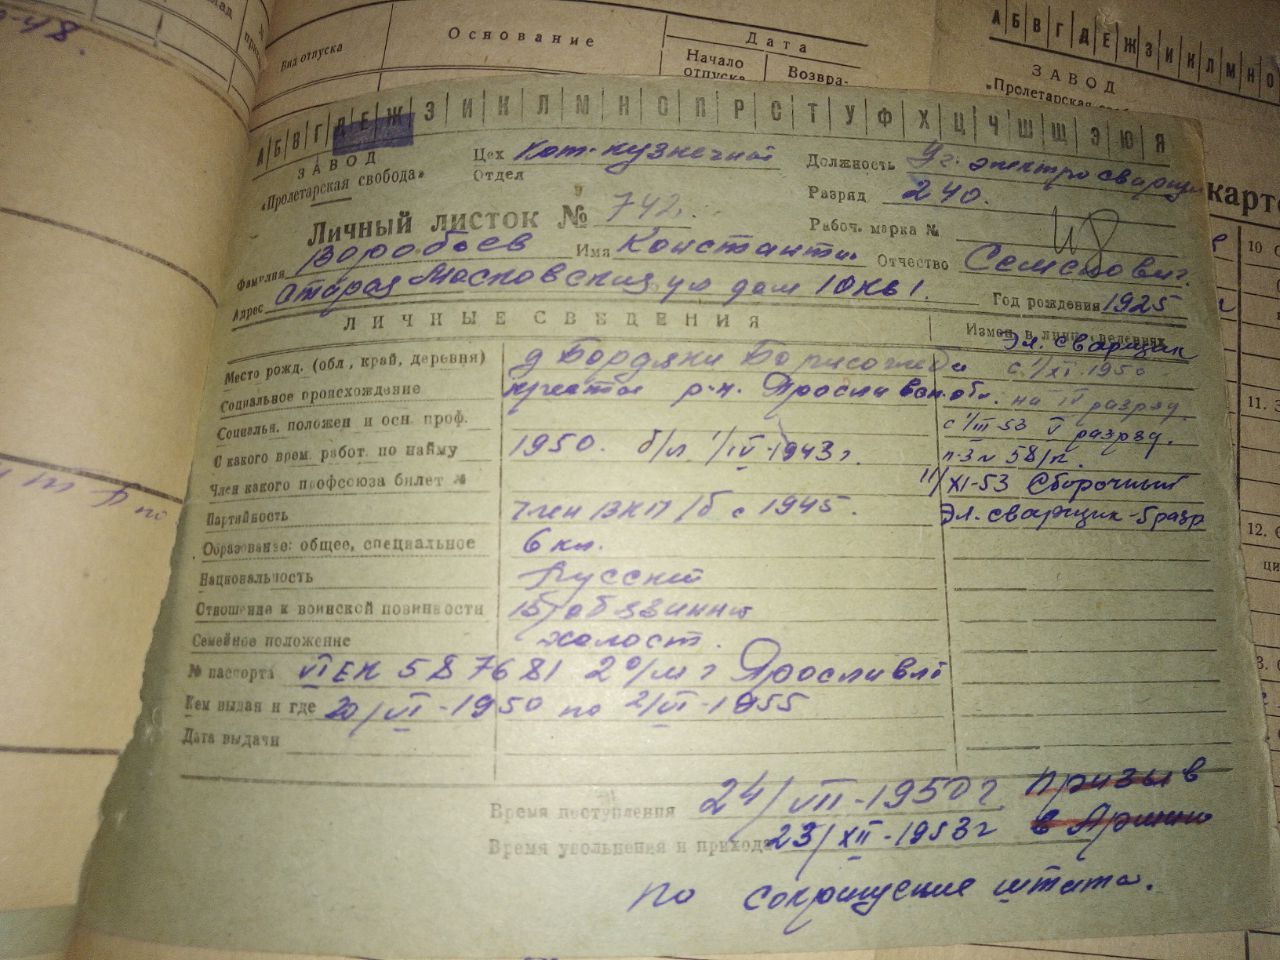 Вид отпуска
Основание
Дата
Начало отпуска
Возвра-
А Б В Г Д Е Ж З И К Л М Н О
ЗАВОД
„Пролетарская
карто
А Б В Г Д Е Ж З И К Л М Н О П Р С Т У Ф Х Ц Ч Ш Щ Э Ю Я
ЗАВОД
«Пролетарская свобода»
Цех Кот-кузнечной
Отдел
Должность Уч. электросварщик
Разряд 240.
Личный листок № 742.
Рабоч. марка №
Фамилия Воробьев Имя Константин Отчество Семенович
Адрес Старая Московская ул дом 10 кв 1. Год рождения 1925
ЛИЧНЫЕ СВЕДЕНИЯ
Место рожд. (обл., край, деревня) д
Социальное происхождение р-н.
Социальн. положен и осн. проф.
С какого врем. работ. по найму 1950. б/л 1/IV-1943 г.
Член какого профсоюза билет №
Партийность член ВКП/б с 1945.
Образование: общее, специальное 6 кл.
Национальность Русский
Отношение к воинской повинности
Семейное положение холост.
№ паспорта VI ЕК 587681 2 о/м г Ярославль
Кем выдан и где 20/VI-1950 по 2/VI-1955
Дата выдачи
Эл. сварщик
с 1/XI-1950
на IV разряд.
с 1/III-53 V разряд.
11/XI-53 Сборочный
Эл. сварщик-5 разр
Время поступления 24/VII-1950 г призыв
Время увольнения и прихода 23/XII-1953 г в Армию
по сокращение штата.
10
11.
12.